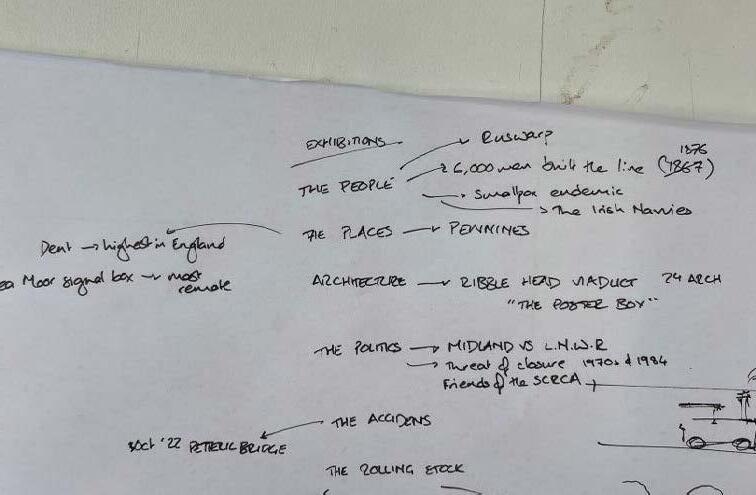 EXHIBITIONS
Ruswarp
THE PEOPLE
6,000 men built the line (1867)
1876
Smallpox endemic
The Irish Navvies
THE PLACES PENNINES
Dent → highest in England
Moor signal box most
remote
ARCHITECTURE RIBBLE HEAD VIADUCT 24 ARCH
"THE POSTER BOY"
THE POLITICS → MIDLAND VS L.N.W.R
→ Threat of closure 1970s & 1984
Friends of the SCRCA
THE ACCIDENS
'22 PETTERIL BRIDGE
THE ROLLING STOCK